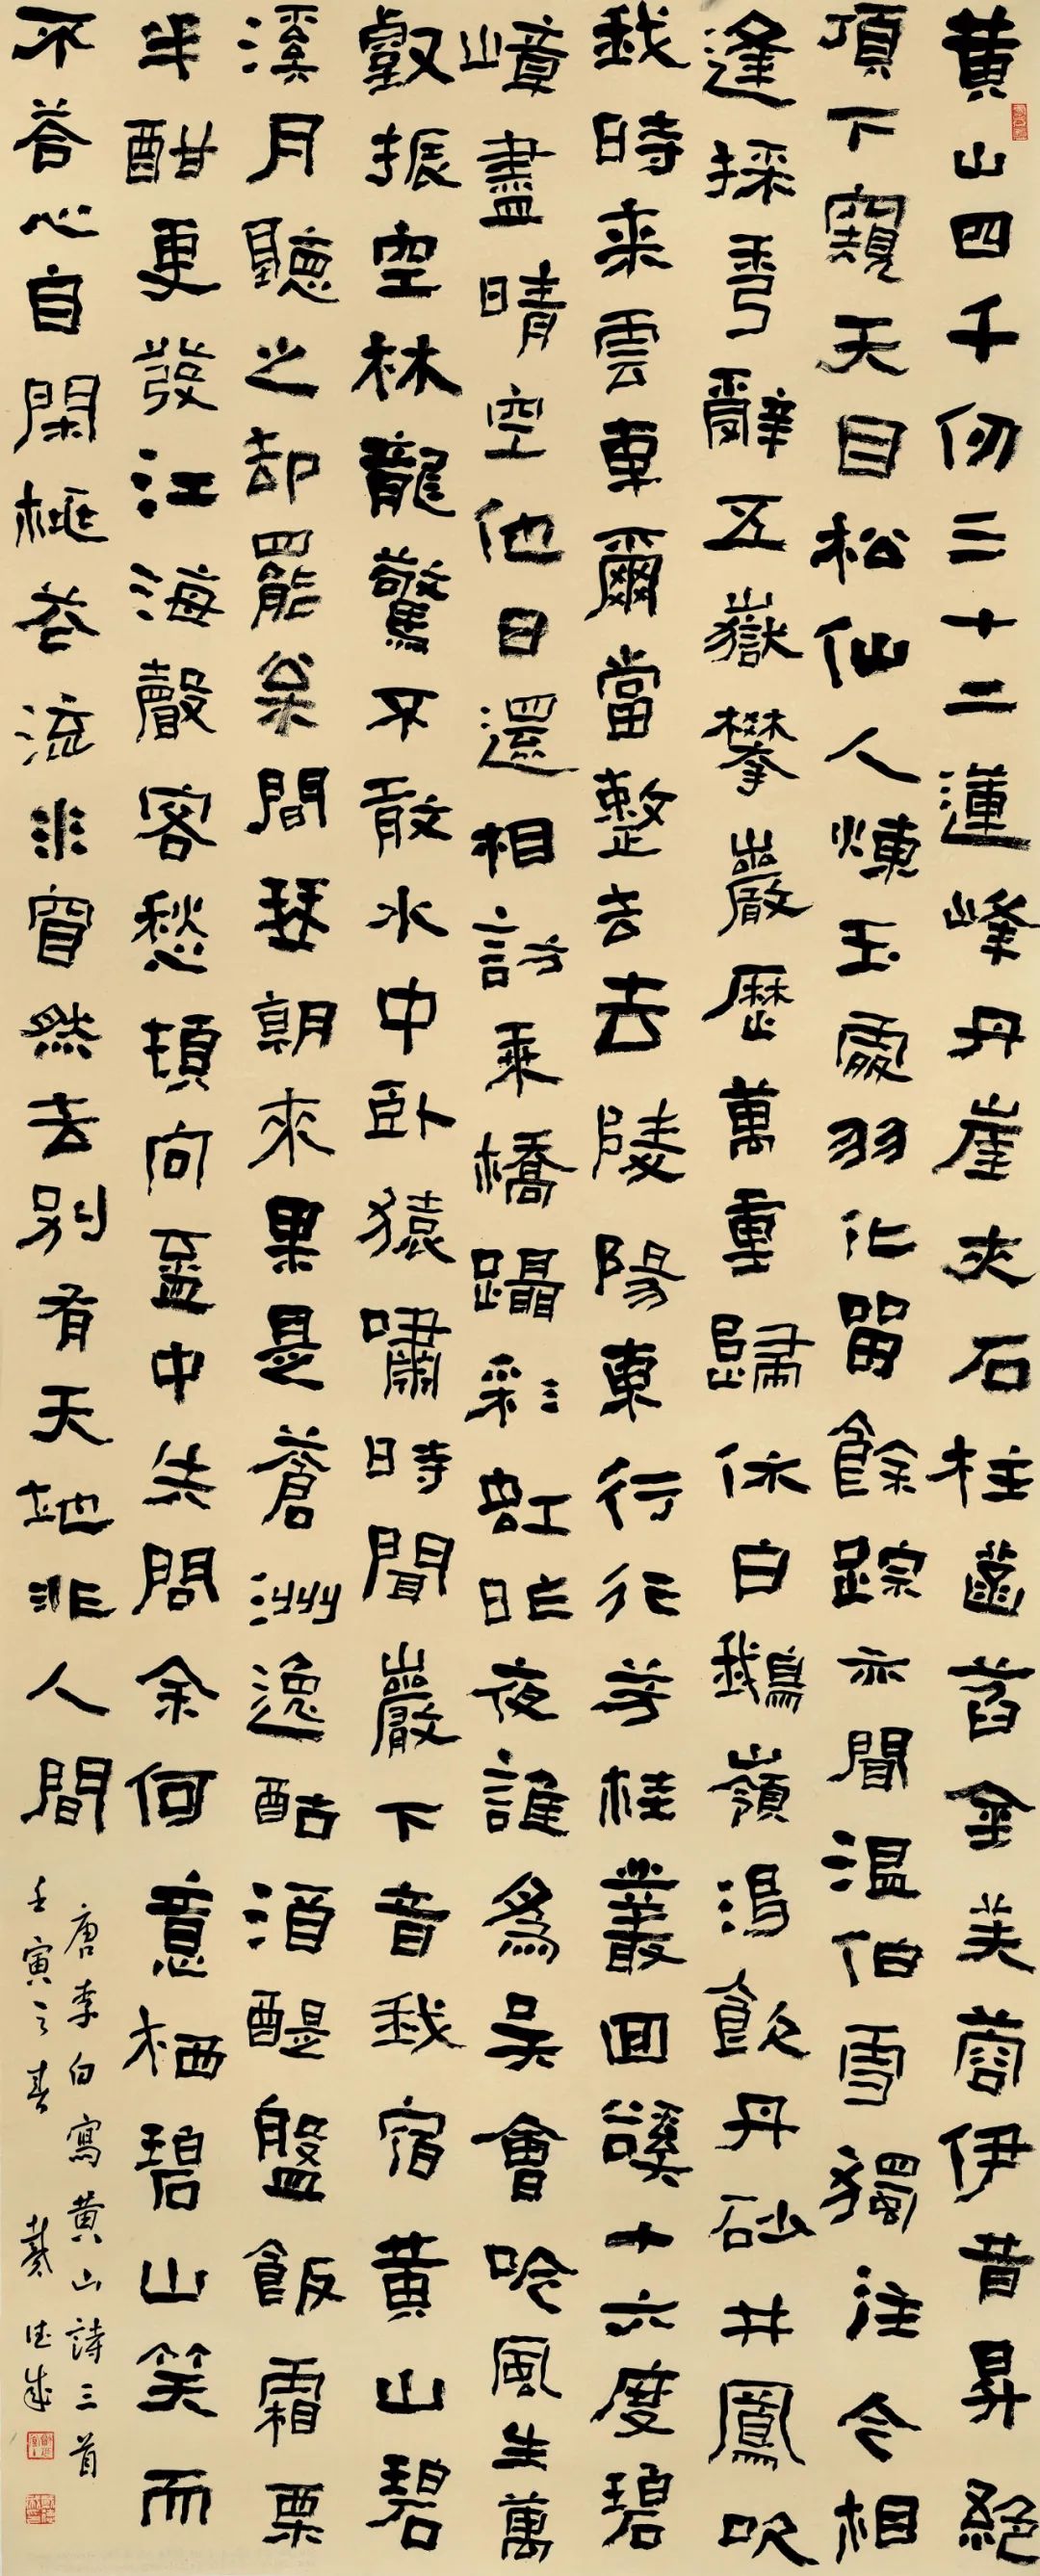 黄山四千仞三十二蓮峰丹崖夾石柱菡萏金芙蓉伊昔昇絕
頂下窺天目松仙人煉玉處羽化留餘踪亦聞温伯雪獨往今相
逢採秀辭五嶽攀巖歷萬重歸休白鵝嶺渴飲丹砂井鳳吹
我時來雲車爾當整去去陵陽東行行芳桂叢回谿十六度碧
嶂盡晴空他日還相訪乘橋躡彩虹昨夜誰為吳會吟風生萬
壑振空林龍驚不敢水中臥猿嘯時聞巖下音我宿黄山碧
溪月聽之却罷枀間琴朝來果是蒼洲逸酤酒醍盤飯霜栗
半酣更發江海聲客愁頓向盃中失問余何意栖碧山笑而
不答心自閑桃花流水窅然去別有天地非人間
唐李白寫黄山詩三首
壬寅之春